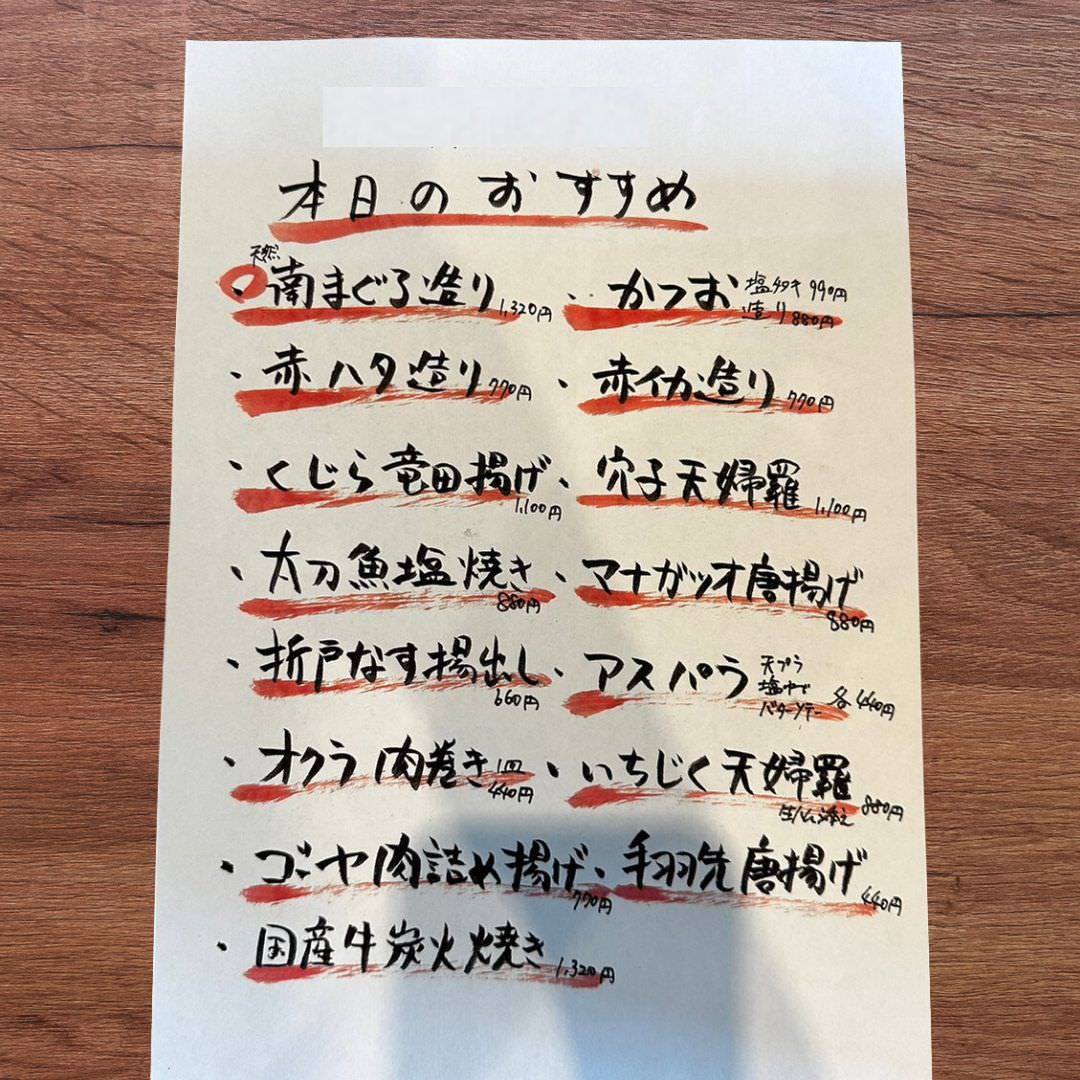 本日のおすすめ
天然
・南まぐろ造り 1,320円
・かつお 塩タタキ 990円
造り 880円
・赤ハタ造り 770円
・赤イカ造り 770円
・くじら竜田揚げ 1,100円
・穴子天婦羅 1,100円
・太刀魚塩焼き 880円
・マナガツオ唐揚げ 880円
・折戸なす揚出し 660円
・アスパラ 天プラ
塩ゆで
バターソテー 各440円
・オクラ肉巻き 1皿 440円
・いちじく天婦羅 880円
生ハム添え
・ゴーヤ肉詰め揚げ 770円
・手羽先唐揚げ 440円
・国産牛炭火焼き 1,320円